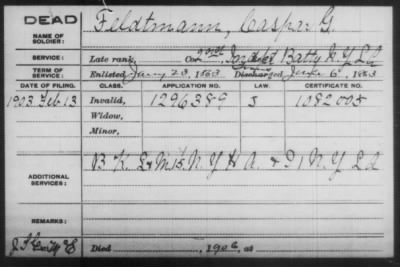 DEAD
NAME OF SOLDIER: Feldtmann, Casper G.
SERVICE: Late rank, Co. Batty N.Y. L A
Enlisted 23, 1863 Discharged June 6, 1863
DATE OF FILING. CLASS. APPLICATION NO. LAW. CERTIFICATE NO.
1903 Feb 13 Invalid, 1296389 J 1082005
Widow,
Minor,
ADDITIONAL SERVICES: B K L & M 15 N.Y. H A. & I 1 N.Y. L A
REMARKS:
Died , 190 , at